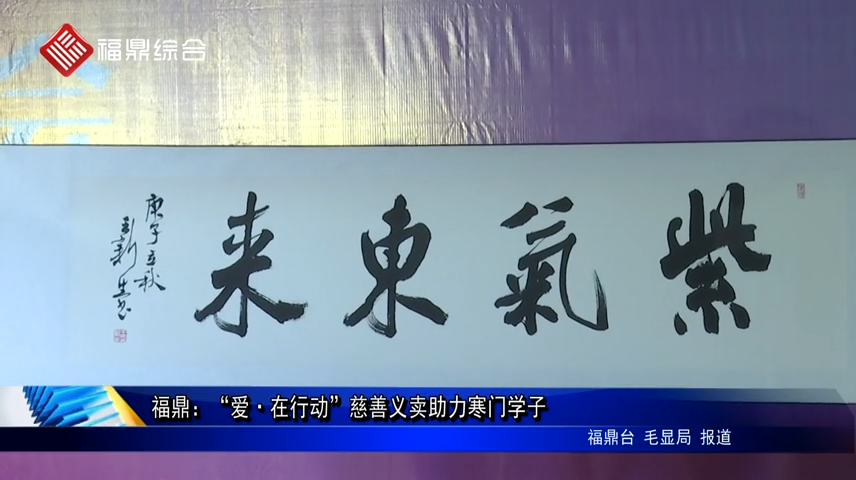 福鼎综合
紫氣東来
庚子立秋
福鼎：“爱·在行动”慈善义卖助力寒门学子
福鼎台 毛显局 报道